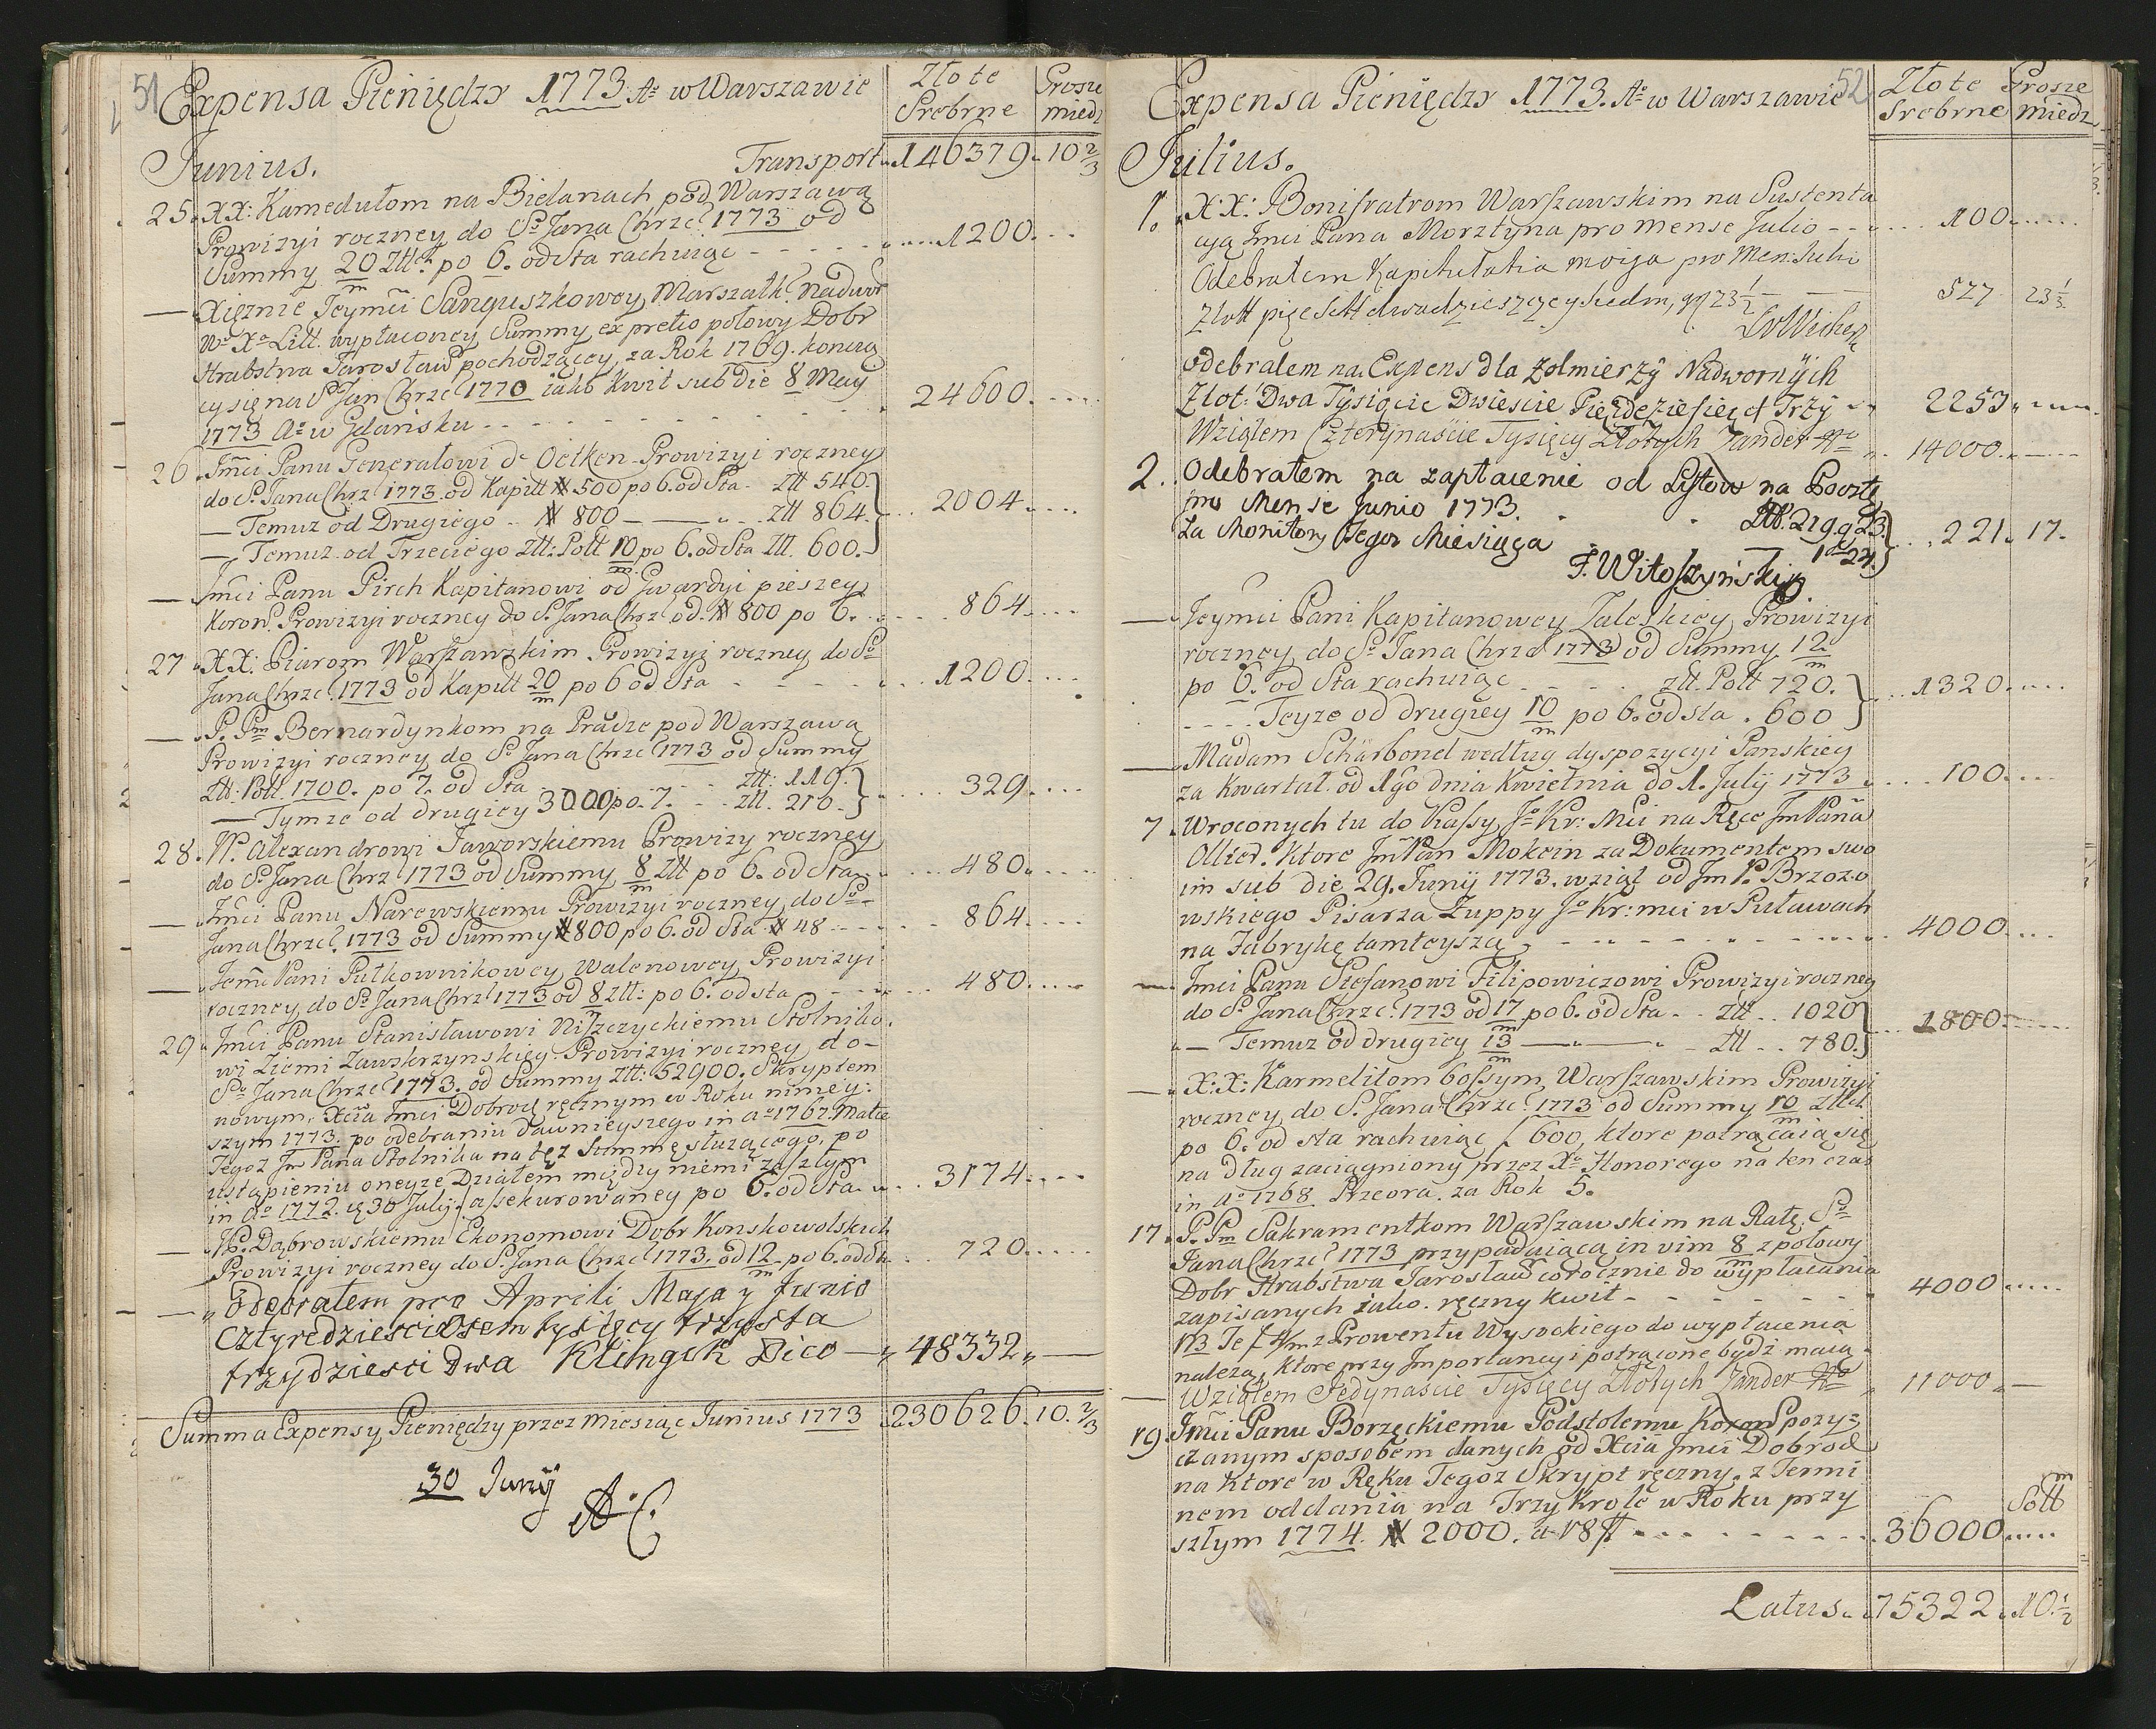 51
Expensa Pieniędzy 1773 Ao w Warszawie
Złote Srebrne
Grosze miedz
Junius.
Transport 146379. 10 2/3
25. XX: Kamedułom na Bielanach pod Warszawą
Prowizyi roczney do So Jana Chrzc: 1773 od
Summy 20/m Ztt: po 6. od Sta rachuiąc - - - 1200.
— Xiężnie Jeymći Sanguszkowey Marszałk: Nadwor
Wo Xo Litt. wypłaconey Summy ex pretio połowy Dobr
Hrabstwa Jarosław pochodzącey, za Rok 1769. kończą
cy się na S. Jan Chrzc: 1770 iako Kwit sub die 8 May
1773 Ao w Gdańsku - - - 24600.
26. Jmći Panu Generałowi de Oetken Prowizyi roczney
do So Jana Chrz: 1773. od Kapitt # 500 po 6. od Sta - Ztt 540.
— Temuz od Drugiego .. # 800 — „ .. Ztt 864. 2004.
— Temuz od Trzeciego Ztt: Poll 10/m po 6. od Sta Ztt. 600.
— Jmći Panu Pirch Kapitanowi od Gwardyi pieszey
Koron. Prowizyi roczney do S. Jana Chrz: od # 800 po 6. 864.
27. XX: Piarom Warszawzkim Prowizyi roczney do So
Jana Chrzc: 1773 od Kapitt 20/m po 6 od Sta - - - 1200.
— P. Pm Bernardynkom na Pradze pod Warszawą
Prowizyi roczney do So Jana Chrzc: 1773 od Summy
Ztt: Poll 1700. po 7. od Sta - - Ztt: 119.
— Tymze od drugiey 3000 po 7. - - Ztt. 210. 329.
28. W. Alexandrowi Jaworskiemu Prowizy roczney
do So Jana Chrz: 1773 od Summy 8/m Ztt po 6. od Sta. 480.
— Jmći Panu Narewskiemu Prowizyi roczney do So
Jana Chrzc: 1773 od Summy # 800 po 6. od Sta # 48 - - 864.
— Jemći Pani Pułkownikowey Walenowey Prowizyi
roczney do So Jana Chrz: 1773 od 8/m Ztt: po 6. od sta - - 480.
29. Jmći Panu Stanisławowi Niszczyckiemu Stolniko.
wi Ziemi Zawskrzynskiey Prowizyi roczney do
So Jana Chrzc: 1773. od Summy Ztt: 52900. Skryptem
nowym, Xcia Jmći Dobrod ręcznym w Roku ninieyː
szym 1773. po odebraniu dawnieyszego in ao 1767. Matce
Tegoz Jm Pana Stolnika na tęz Summę służącego, po
ustąpieniu oneyze Działem między niemi zaszłym
in ao 1772. d 30 July. assekurowaney po 6. od Sta. 3174.
— W. Dąbrowskiemu Ekonomowi Dobr Konskowolskich
Prowizyi roczney do S. Jana Chrzc: 1773. od 12/m po 6. od sta 720.
— Odebrałem pro Aprili Maja y Junio
cztyredziescieosiem tysięcy trzysta
trzydziesci Dwa Klingck Dico — „ 48332„ —
Summa Expensy Pieniędzy przez miesiąc Junius 1773 230626. 10. 2/3
30 Juny
A C.
52
Expensa Pieniędzy 1773. Ao w Warszawie
Złote Srebrne
Grosze miedz
Julius.
1. X: X: Bonifratrom Warszawskim na Sustenta
cyą Jmći Pana Morsztyna pro mense Julio - - - 100.
Odebrałem Kapitulatia moija pro Men: Julii
Złott pięcsett dwadziesczcy siedm, gg 23 1/2 527 23 1/2
odebralem na Expens dla Zolmierzy Nadwornych
Złot: Dwa Tysiącie Dwiescie Pięzdeziesięct Trzy 2253
Wziąłem Czterynaście Tysięcy Złotych Zander 14000.
2. Odebrałem na zapłacenie od Lystow na Pocztę
pro Mense Junio 1773. Ztt. 219. g 23.
Za Monitory Tegoż Miesiąca 1 „ 24. 221. 17.
F. Witoszyński
— Jeymći Pani Kapitanowey Zaleskiey Prowizyi
roczney do So Jana Chrzc: 1773 od Summy 12/m
po 6. od Sta rachuiąc - - Ztt. Poll 720.
- - Teyze od drugiey 10/m po 6. od sta . 600 1320.
— Madam Scharbonel według dyspozycyi Panskiey
za kwartał od 1go dnia Kwietnia do 1. July 1773 100.
7. Wroconych tu do Kassy Jo Kr: Mći na Ręce Jm Pana
Ollier. Ktore Jm Pan Mokein za Dokumentem swo
im sub die 29. Junij 1773. wziął od Jm P. Brzozo
wskiego Pisarza Zuppy Jo Kr: mći w Puławach
na Fabrykę tamteyszą - - - 4000.
— Jmći Panu Stefanowi Filipowiczowi Prowizyi roczney
do So Jana Chrzc: 1773 od 17/m po 6. od Sta - - Ztt .. 1020
— Temuz od drugiey 13/m — „ — Ztt .. 780. 1800.
— X: X: Karmelitom bossym Warszawskim Prowizyi
roczney do S. Jana Chrzc: 1773 od Summy 10/m Ztt
po 6. od sta rachuiąc f 600, ktore potrącaią się
na dług zaciągniony przez Xa Honorego na ten czas
in Ao 1768 Przeora. za Rok 5.
17. P. Pm Sakramentkom Warszawskim na Ratę So
Jana Chrzc: 1773 przypadaiącą in vim 8/m z połowy
Dobr Hrabstwa Jarosław corocznie do wypłacania
zapisanych iako ręczny kwit - - - 4000
NB Te f 4/m z Prowentu Wysockiego do wypłacenia
nalezą, ktore przy Importancyi potrącone bydź maią.
— Wziąłem Jedynaście Tysięcy Złotych Zander 11000 „ —
19. Jmći Panu Borzęckiemu Podstolemu Koron Pozyː
czanym sposobem danych od Xcia Jmći Dobrod
na ktore w Ręku Tegoz Skrypt ręczny z Termi
nem oddania na Trzy Krole w Roku przy
szłym 1774. # 2000. a 18 f - - - 36000
Latus. 75322. 10. 1/2